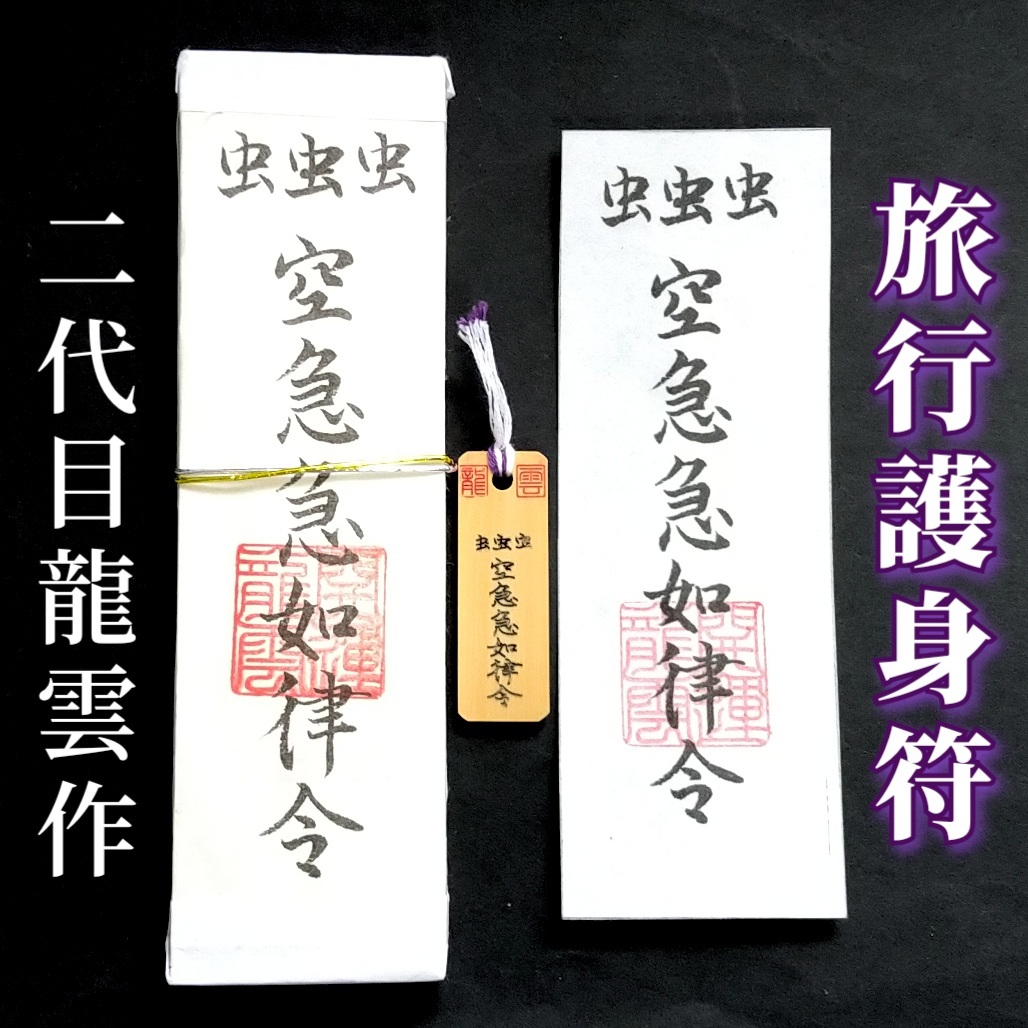 旅行護身符
虫虫虫
空急急如律令
幸運
龍雲
龍 雲
空急急如律令
虫虫虫
空急急如律令
幸運
龍雲
二代目龍雲作